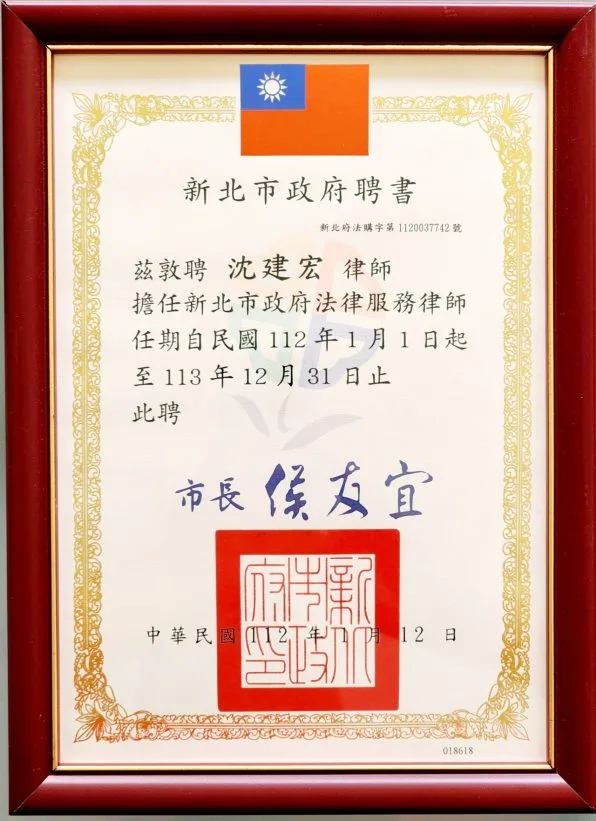 新北市政府聘書
新北府法購字第1120037742號
茲敦聘 沈建宏 律師
擔任新北市政府法律服務律師
任期自民國112年1月1日起
至113年12月31日止
此聘
市長 侯友宜
新北市政府印
中華民國112年1月12日
018618